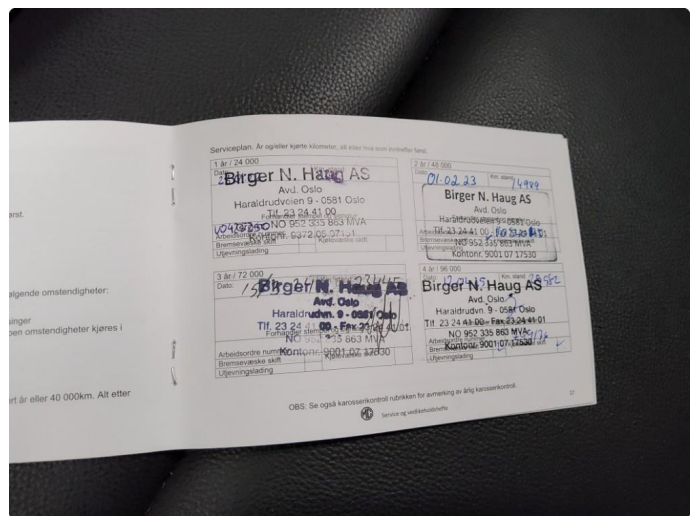 ørst.
ølgende omstendigheter:
inger
en omstendighet kjøres i
rt år eller 40 000km. Alt etter
Serviceplan. År og/eller kjørte kilometer, alt etter hva som inntreffer først.
1 år / 24 000
Birger N. Haug AS
Avd. Oslo
Haraldrudveien 9 - 0581 Oslo
Tlf. 23 24 41 00
NO 952 335 863 MVA
Bremsevæske skift
Kjølevæske skift
Utjevningslading
2 år / 48 000
Dato:
01.02.23
Km. stand
14989
Birger N. Haug AS
Avd. Oslo
Haraldrudveien 9 - 0581 Oslo
Tlf. 23 24 41 00
NO 952 335 863 MVA
Kontonr. 9001 07 17530
3 år / 72 000
Dato:
Birger N. Haug AS
Avd. Oslo
Haraldrudvn. 9 - 0581 Oslo
Tlf. 23 24 41 00 - Fax 23 24 41 01
NO 952 335 863 MVA
Arbeidsordre nummer
Kontonr. 9001 07 17530
Bremsevæske skift
Kjølevæske skift
Utjevningslading
4 år / 96 000
Dato:
Km. stand
Birger N. Haug AS
Avd. Oslo
Haraldrudvn. 9 - 0581 Oslo
Tlf. 23 24 41 00 - Fax 23 24 41 01
NO 952 335 863 MVA
Kontonr. 9001 07 17530
Utjevningslading
OBS: Se også karosserikontroll rubrikken for avmerking av årlig karosserikontroll.
MG
Service og vedlikeholdshefte